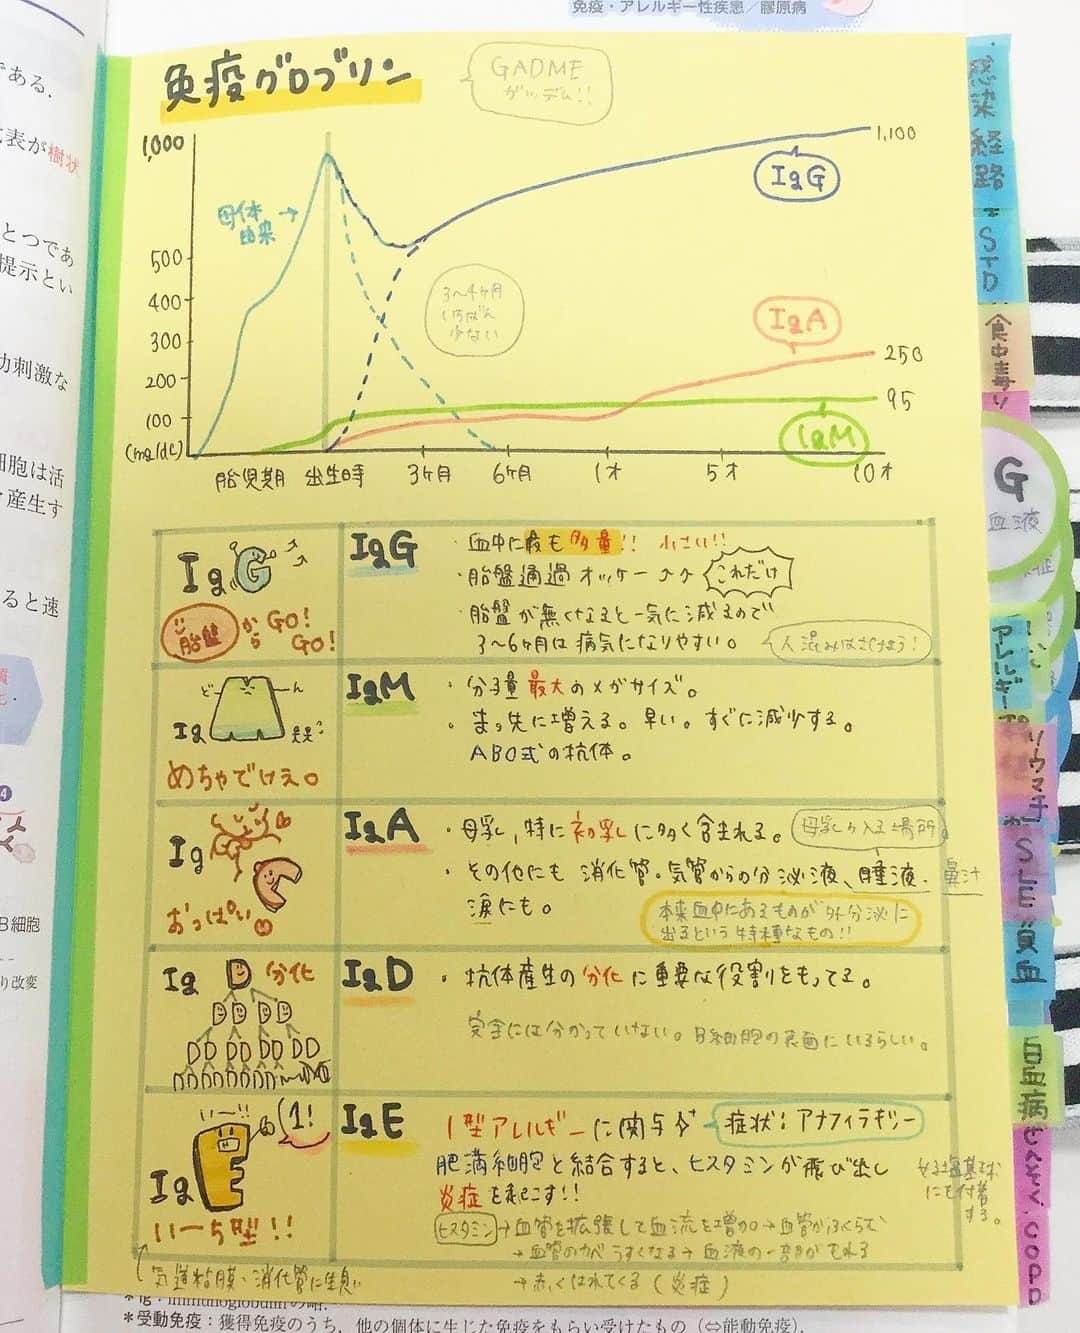 免疫・アレルギー性疾患／膠原病
である.
表が樹状
とつであ
提示とい
刺激な
細胞は活
産生す
ると速
B細胞
り改変
免疫グロブリン
GADME
ガッデム!!
1,000
500
400
300
200
100
(mg/dl)
母体
由来
3〜4ヶ月
いちばん
少ない
IgG
1,100
IgA
250
95
IgM
胎児期 出生時 3ヶ月 6ヶ月 1才 5才 10才
IgG
胎盤から GO!
GO!
IgG
・血中に最も多量!! 小さい!!
・胎盤通過オッケー これだけ
・胎盤が無くなると一気に減るので
3〜6ヶ月は病気になりやすい。 人混みはさけよう!
ど ん
Ig
めちゃでけえ。
IgM
・分子量最大のメガサイズ。
・まっ先に増える。早い。すぐに減少する。
ABO式の抗体。
Ig
おっぱい
IgA
・母乳,特に初乳に多く含まれる。 母乳が入る場所
・その他にも 消化管・気管からの分泌液、唾液・鼻汁
涙にも。
本来血中にあるものが外分泌に
出るという特種なもの!!
Ig D 分化
D D D D
DD DD DD DD
IgD
・抗体産生の分化に重要な役割をもってる。
完全には分かっていない。B細胞の表面にいるらしい。
いーー! 1!
Ig E
いーち型!!
IgE
1型アレルギーに関与 症状:アナフィラギシー
肥満細胞と結合すると、ヒスタミンが飛び出し
炎症を起こす!!
好塩基球
にも付着
する。
ヒスタミン→血管を拡張して血流を増加→血管がふくらむ
→血管のカベうすくなる→血液の一部がもれる
→赤くはれてくる(炎症)
気道粘膜、消化管に生息
＊Ig：immunoglobulinの略.
＊受動免疫：獲得免疫のうち，他の個体に生じた免疫をもらい受けたもの（⇔能動免疫）.
感染経路
STD
食中毒
G
血液
アレルギー
リウマチ
SLE
貧血
白血病
ぜんそく、COPD